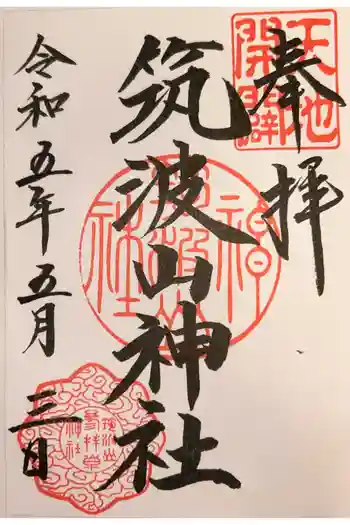 奉拝
天地
開闢
筑波山神社
筑波山神社
令和五年五月三日
筑波山
参拝堂
神社